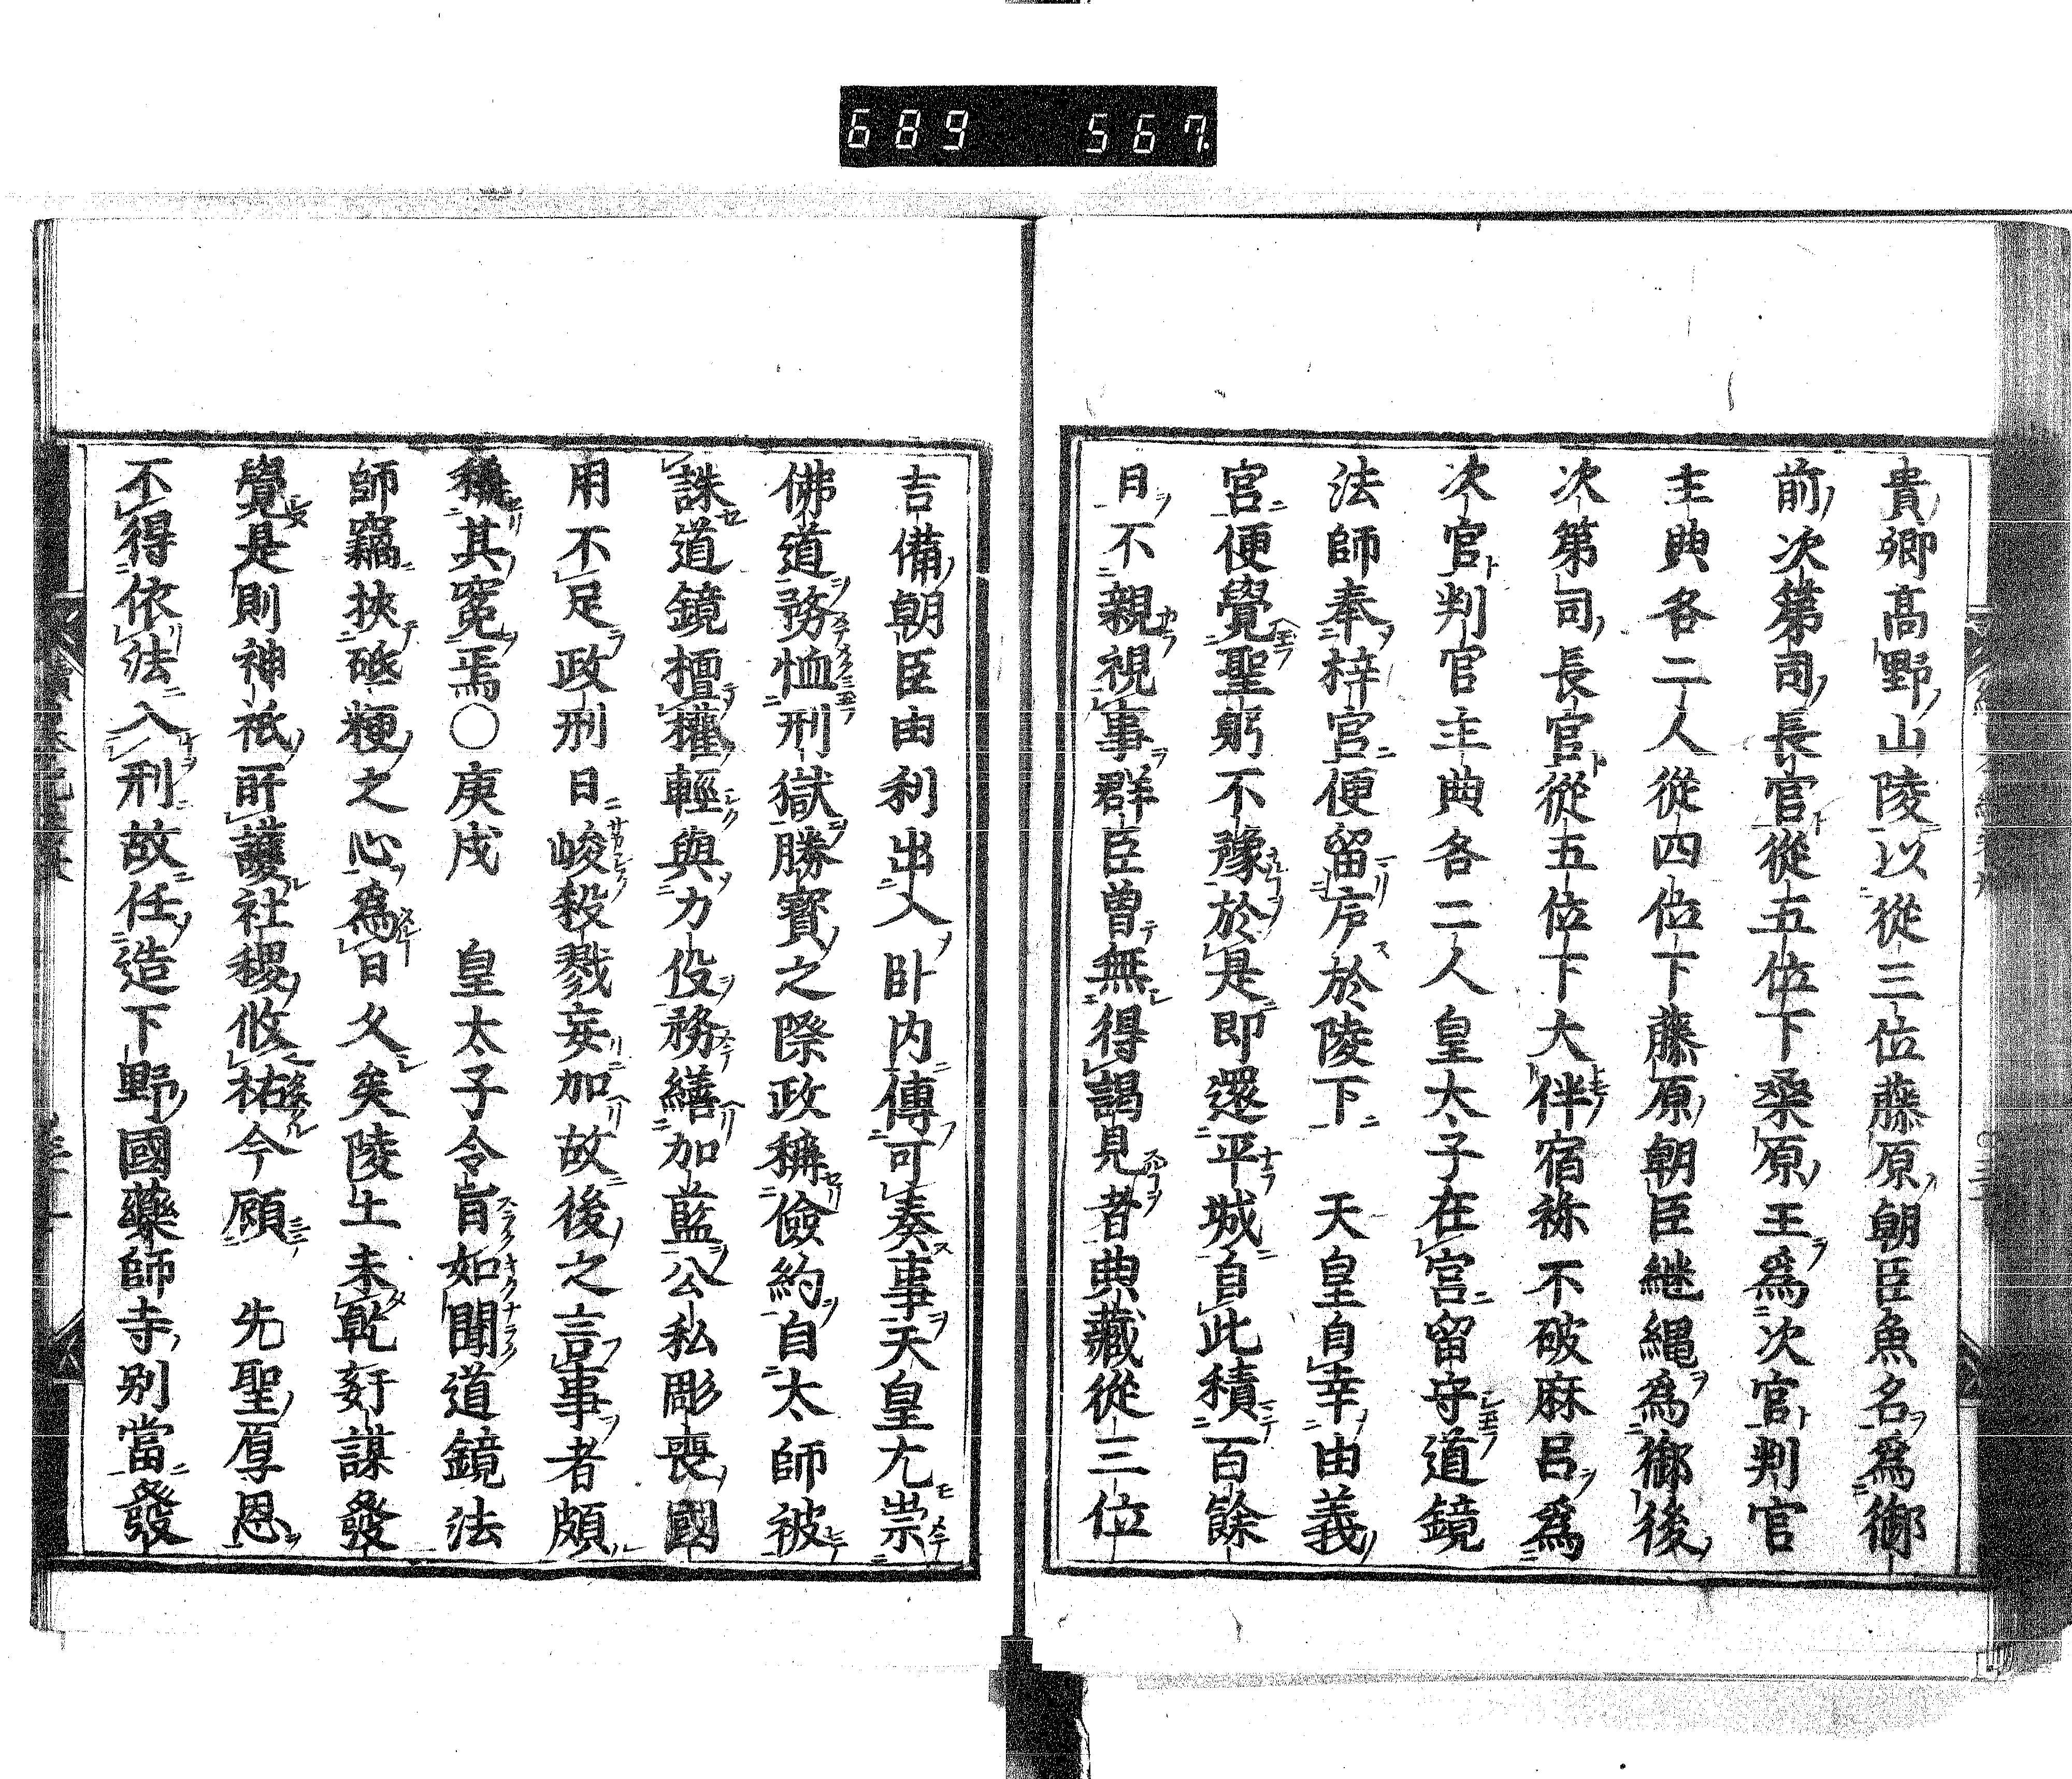 689 567.
貴郷高野山陵以從三位藤原朝臣魚名爲御
前次第司長官從五位下桑原王爲次官判官
主典各二人從四位下藤原朝臣継縄爲御後
次第司長官從五位下大伴宿祢不破麻呂爲
次官判官主典各二人皇太子在宮留守道鏡
法師奉梓宮便留庐於陵下 天皇自幸由義
宮便覺聖躬不豫於是即還平城自此積百餘
日不親視事群臣曽無得謁見者典藏從三位
吉備朝臣由利出入臥内傳可奏事天皇尤崇
佛道務恤刑獄勝寳之際政稱儉約自太師被
誅道鏡擅權輕興力役務繕加藍公私彫喪國
用不足政刑日峻殺戮妄加故後之言事者頗
稱其寃焉〇庚戌 皇太子令旨如聞道鏡法
師竊挾䑛粳之心爲日久矣陵土未乾姧謀發
覺是則神祇所護社稷攸祐今顧 先聖厚恩
不得依法入刑故任造下野國藥師寺別當發